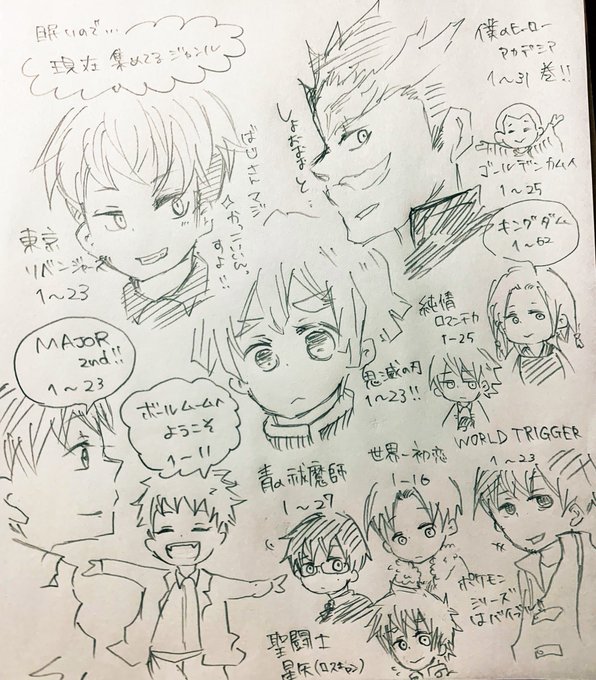 眠いので…
現在 集めてるジャンル
僕のヒーロー
アカデミア
1〜31巻!!
ゴールデンカムイ
1〜25
キングダム
1〜62
東京
リベンジャーズ
1〜23
すよ!!
純情
ロマンチカ
1-25
MAJOR
2nd!!
1〜23
鬼滅の刃
1〜23!!
ボールルームへ
ようこそ
1-11
青の祓魔師
1〜27
世界一初恋
1-16
WORLD TRIGGER
1〜23
ポケモン
シリーズ
はバイブル
聖闘士
星矢(ロスキャン)